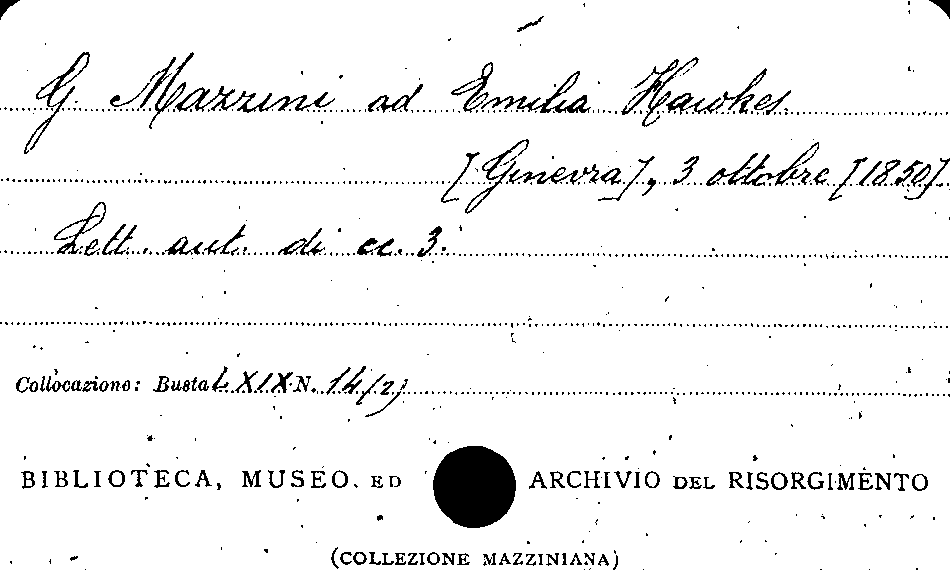 G. Mazzini ad Emilia Hawkes
[Ginevra], 3 ottobre [1850].
Lett. aut. di cc. 3.
Collocazione: Busta LXIX N. 14(2)
BIBLIOTECA, MUSEO ED ARCHIVIO DEL RISORGIMENTO
(COLLEZIONE MAZZINIANA)